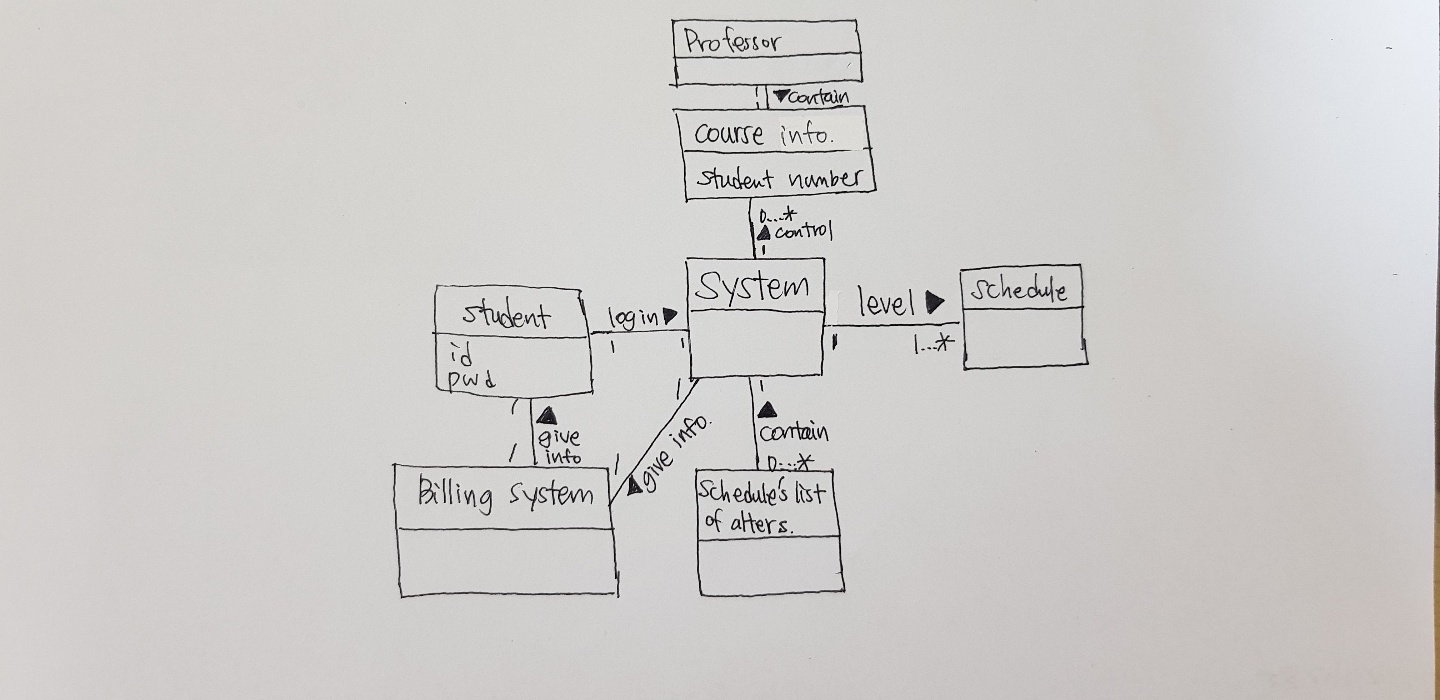 Professor
1 ▼contain
course info.
student number
0...*
▲ control
1
System
student
id
pwd
login ▶
1
1
level ▶
1
1...*
schedule
1
▲
give
info
1
Billing system
1
▲ give info.
1
1
▲
contain
0...*
Schedule's list
of alters.